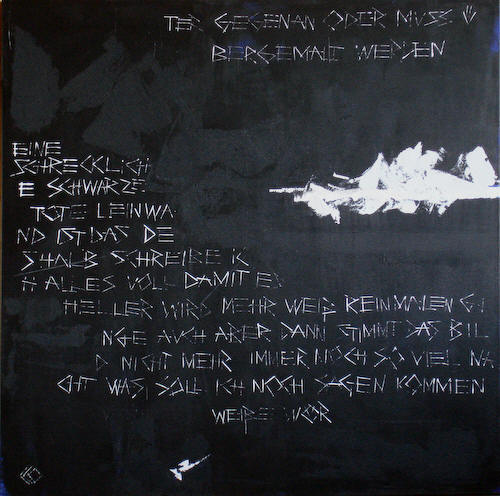 TER GEGENAN ODER MUSS Ü
BERGEMALT WERDEN
EINE
SCHRECKLICH
E SCHWARZE
TOTE LEINWA
ND IST DAS DE
SHALB SCHREIBE IC
H ALLES VOLL DAMIT ES
HELLER WIRD MEHR WEIß REINMALEN GI
NGE AUCH ABER DANN STIMMT DAS BIL
D NICHT MEHR IMMER NOCH SO VIEL NA
CHT WAS SOLL ICH NOCH SAGEN KOMMEN
WEIßE WÖR